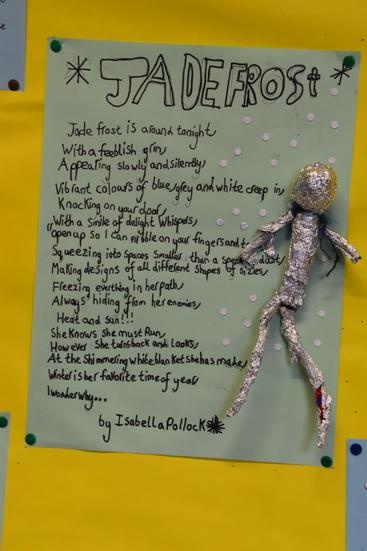 *JADEFROSt*
Jade frost is around tonight,
With a feeblish grin,
Appearing slowly and silently,
Vibrant colours of blue, grey and white creep in,
Knocking on your door,
With a smile of delight whispers,
"Open up so I can nibble on your fingers and
Squeezing into spaces smaller than a speck dust,
Making designs of all different shapes of sizes,
Freezing everthing in her path,
Always hiding from her enemies,
Heat and sun!!!
She knows she must Run,
However She turns back and looks,
At the Shimmering white blanket she has made,
Winter is her favorite time of year,
I wonder why...
by Isabella Pollock*